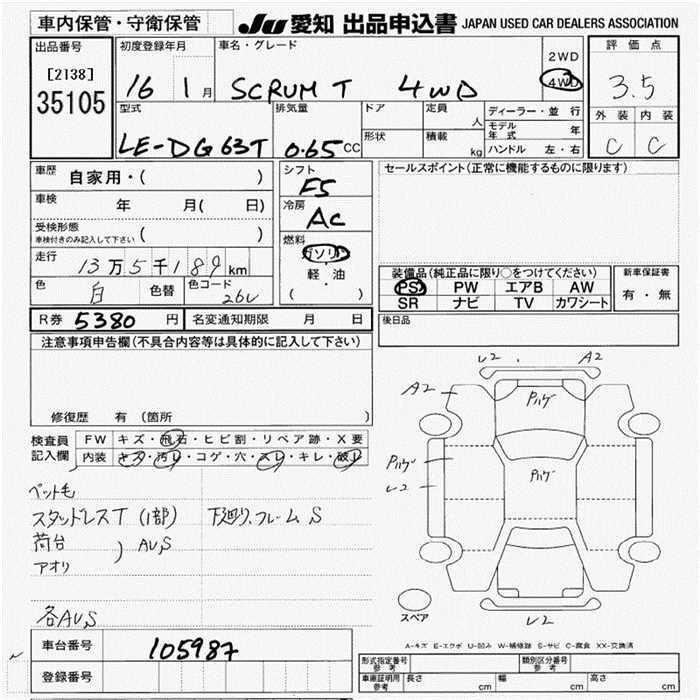 車内保管・守衛保管
JU 愛知 出品申込書 JAPAN USED CAR DEALERS ASSOCIATION
出品番号
[2138]
35105
初度登録年月
16 1月
車名・グレード
SCRUM T 4WD
2WD
4WD
評価点
3.5
外装 内装
C C
型式
LE-DG63T
排気量
0.65CC
ドア
形状
定員
人
積載
kg
ディーラー・並行
モデル年式 年
ハンドル 左・右
車歴 自家用・( )
車検 年 月( 日)
受検形態
車検付きのみ記入して下さい ( )
走行 13万5千189km
色 白 色替 色コード 26U
シフト
F5
冷房
AC
燃料
ガソリン
軽・油
( )
セールスポイント(正常に機能するものに限ります)
装備品(純正品に限り○をつけてください)
PS PW エアB AW
SR ナビ TV カワシート
新車保証書
有・無
R券 5380 円 名変通知期限 月 日
後日品
注意事項申告欄(不具合内容等は具体的に記入して下さい)
修復歴 有 (箇所 )
検査員記入欄
FW キズ・飛石・ヒビ割・リペア跡・X要
内装 キズ・汚レ・コゲ・穴・スレ・キレ・破レ
ペットも
スタッドレスT (1部) 下廻り、フレームS
荷台
アオリ ) AU,S
各AU,S
U2 A2
A2
Pハゲ
Pハゲ
Pハゲ
U2
スペア
U2
A-キズ E-エクボ U-凹み W-補修跡 S-サビ C-腐食 XX-交換済
車台番号 105987
登録番号
型式指定番号 参考
類別区分番号 参考
車庫証明用 参考 長さ cm 幅 cm 高さ cm